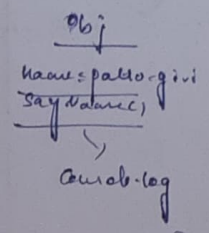 Obj
Name = pablo-givi
Say Name(,
Consol-log